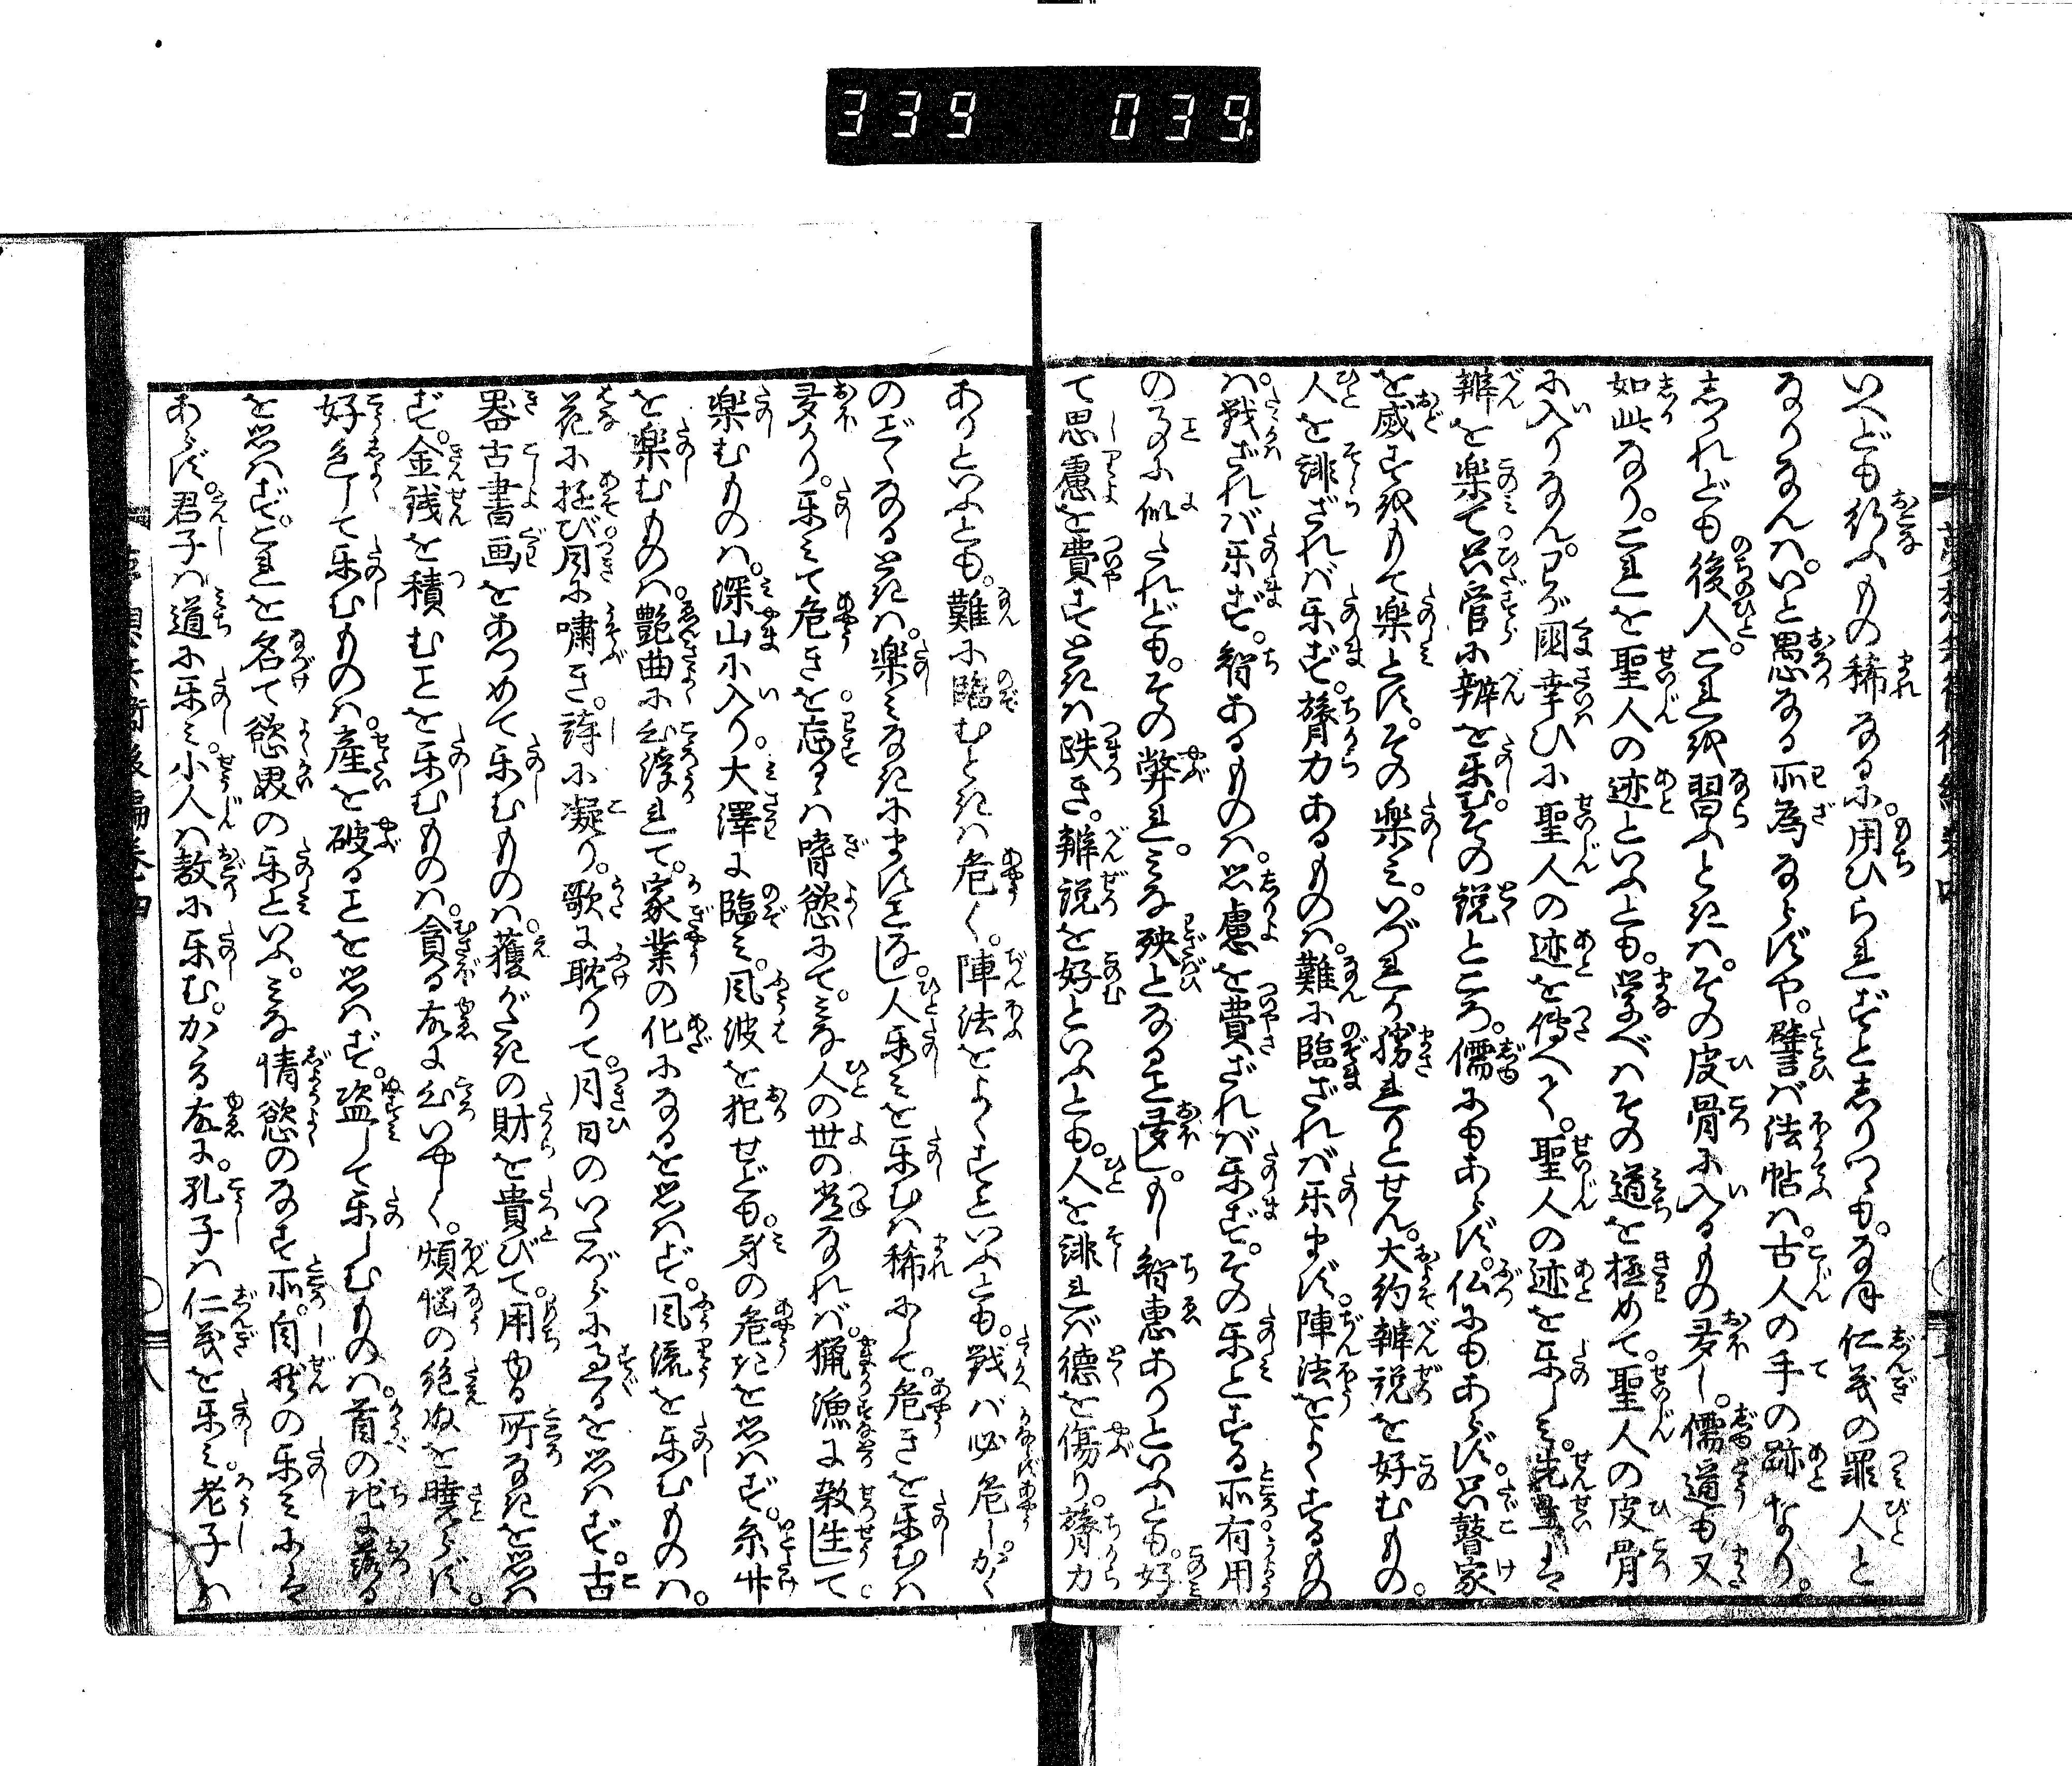 339 039
いへども行ふもの稀なるに。用ひられずとしりつゝも。なほ仁義の罪人と
なりなんは。いと愚なる所為ならずや。譬ば法帖は。古人の手の跡なり。
しかれども後人。これを習ふときは。その皮骨に入るもの多し。儒道も又
如此なり。これを聖人の迹といふとも。学べはその道を極めて。聖人の皮骨
に入りなん。わが国幸ひに聖人の迹を傳へて。聖人の迹を楽しみ。先王は
辨を楽て只管に辨を楽む。その説ところ。儒にもあらず。仏にもあらず。只瞽家
を威すをもて楽とす。その楽み。いづれか勝れりとせん。大約辨説を好むもの。
人を誹ざれば楽ず。膂力あるものは。難に臨ざれば楽まず。陣法をよくするもの
は。戦ざれば楽ず。智あるものは。思慮を費ざれば楽ず。その楽とする所有用
の事に似たれども。その弊れ。みな殃となること多し。もし智恵ありといふとも。好
て思慮を費すときは跌き。辨説を好といふとも。人を誹れば徳を傷り。膂力
ありといふとも。難に臨むときは危く。陣法をよくすといふとも。戦ば必危し。かく
のごくなるときは。楽みなきにますことなし。人楽みを楽むは稀にして。危きを楽むは
多かり。楽みて危きを忘るは嗜慾にて。みな人の世の常なれば。猟漁に殺生して
楽むものは。深山に入り。大澤に臨み。風波を犯せども。身の危きを思はず。糸竹
を楽むものは。艶曲に心浮れて。家業の化になるを思はず。風流を楽むものは。
花に遊び月に嘯き。詩に凝り。歌に耽りて。月日のいたづらに過るを思はず。古
器古書画をあつめて楽むものは。獲がたきの財を貴びて。用ゆる所なきを思は
ず。金銭を積むことを楽むものは。貪る故に心いやしく。煩悩の絶ぬを曉らず。
好色して楽むものは。産を破ることを思はず。盗して楽しむものは。首の地に落る
を思はず。これを名て慾界の楽といふ。みな情慾のなす所。自然の楽みには
あらず。君子は道に楽み。小人は敖に楽む。かゝる故に。孔子は仁義を楽み。老子は